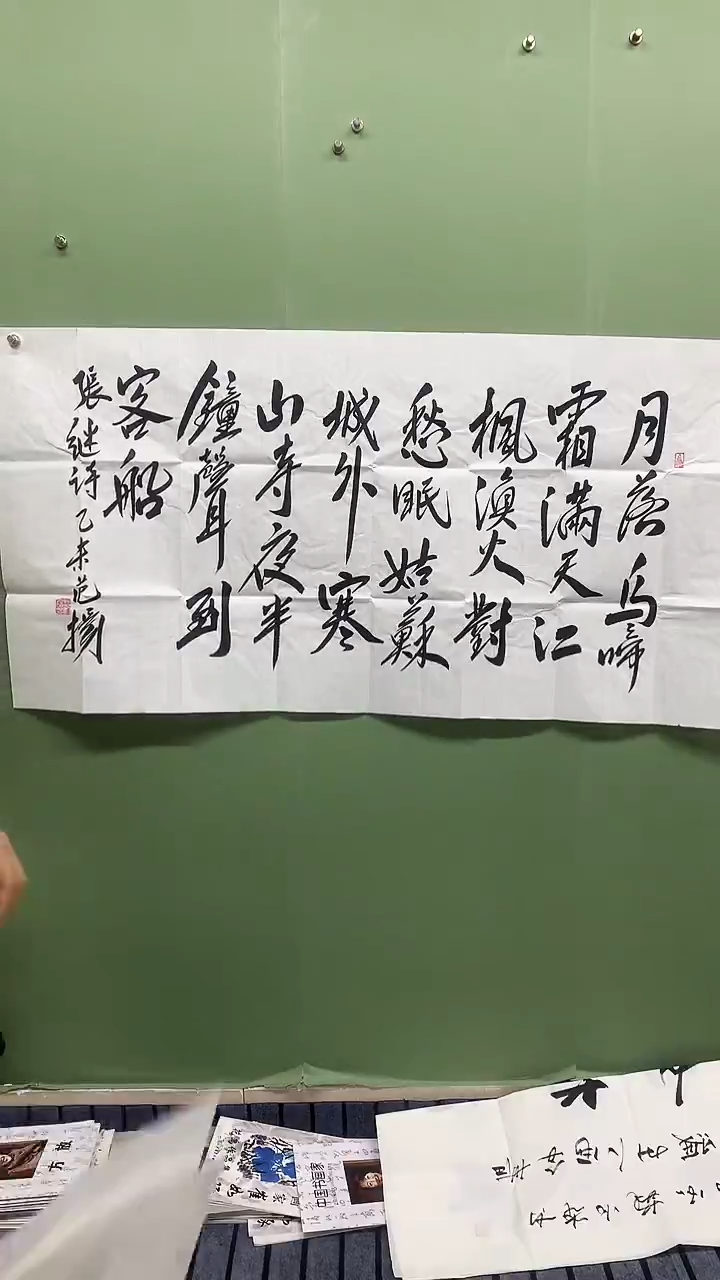 月落烏啼
霜滿天江
楓漁火對
愁眠姑蘇
城外寒
山寺夜半
鐘聲到
客船
張继诗乙未范揚
中国书画家